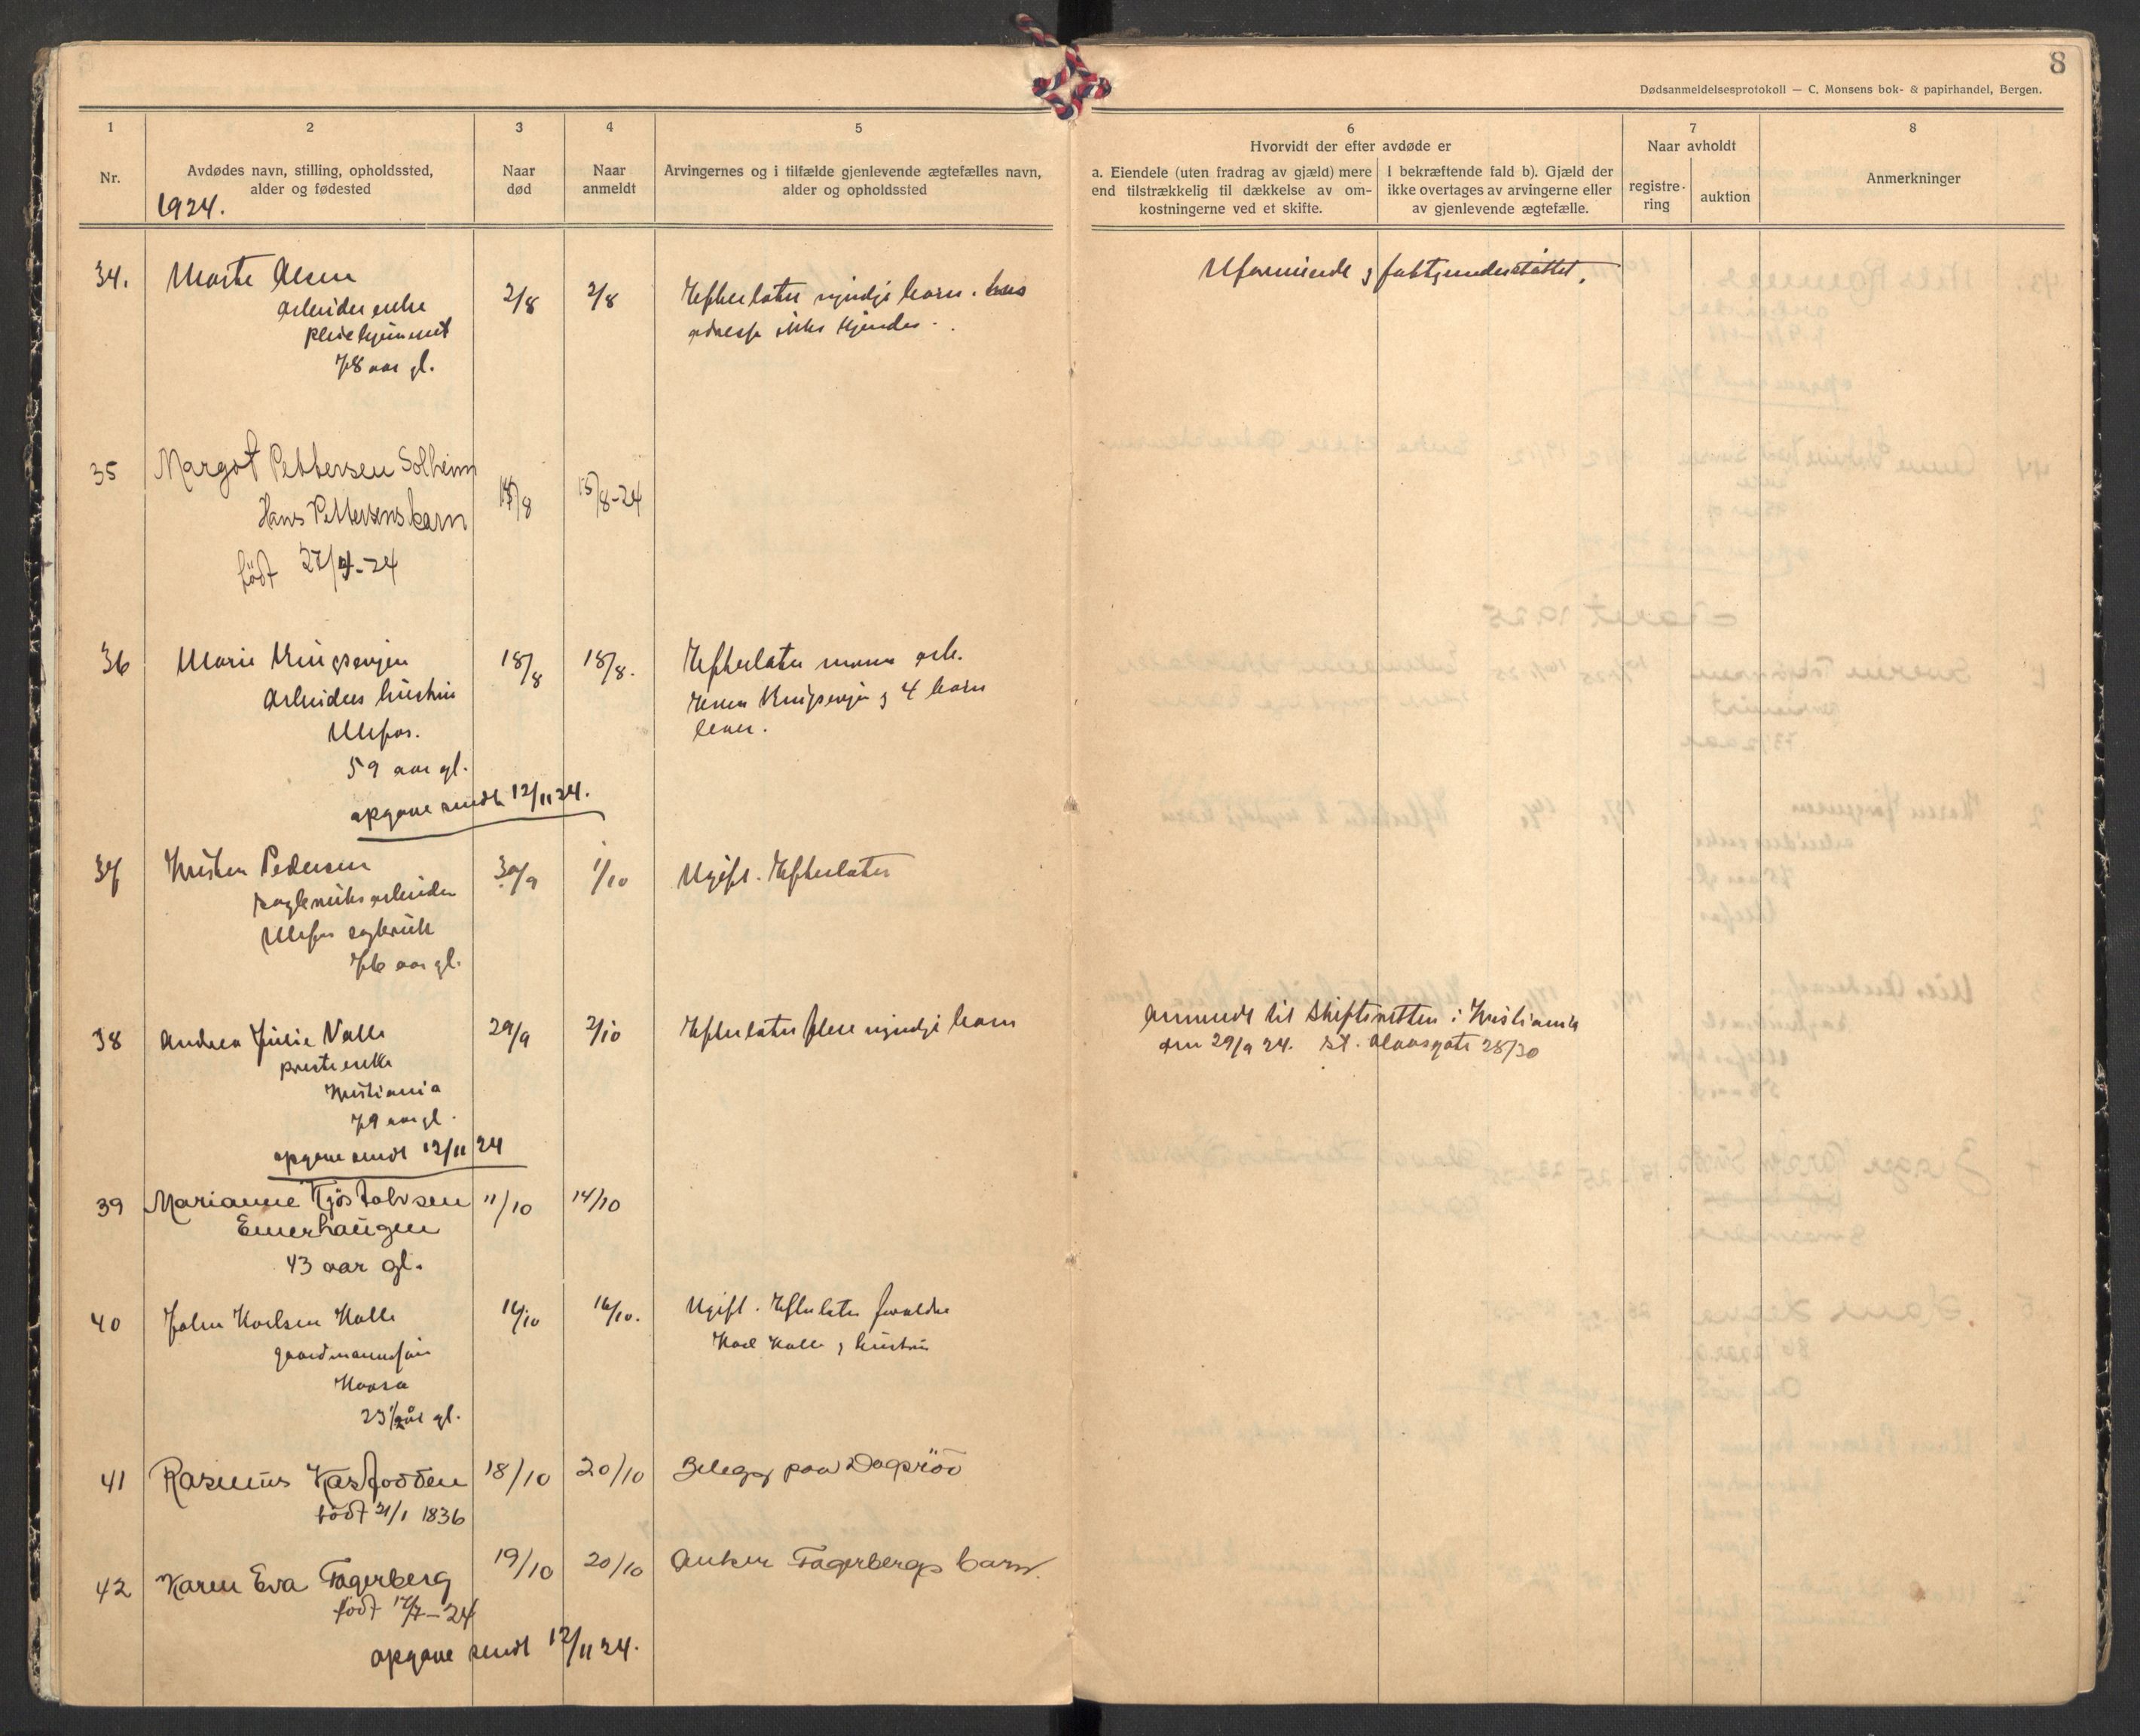 8
Dødsanmeldelsesprotokoll — C. Monsens bok- & papirhandel, Bergen.
1
2
3
4
5
6
7
8
Nr.
Avdødes navn, stilling, opholdssted,
alder og fødested
Naar
død
Naar
anmeldt
Arvingernes og i tilfælde gjenlevende ægtefælles navn,
alder og opholdssted
Hvorvidt der efter avdøde er
a. Eiendele (uten fradrag av gjæld) mere
end tilstrækkelig til dækkelse av om-
kostningerne ved et skifte.
I bekræftende fald b). Gjæld der
ikke overtages av arvingerne eller
av gjenlevende ægtefælle.
Naar avholdt
registre-
ring
auktion
Anmerkninger
1924.
34.
Marte Olsen
arbeiderenke
pleiehjemmet
78 aar gl.
2/8
2/8
Efterlater myndje barn.
adresse ikke kjendes.
Uformuende & fattigunderstøttet.
35
Margot Pettersen Solheim
Hans Pettersens barn
født 27/4-24
15/8-24
36
Marie Kringsevjen
Arbeiders hustru
Ulefos.
59 aar gl.
18/8
18/8.
Efterlater mann arb.
Kringsevjen & 4 barn
lever.
opgave sendt 12/11 24.
37
Kristen Pedersen
arbeider
Ulefos
76 aar gl.
30/9
1/10
Ugift. Efterlater
38
Andrea Julie Valle
presteenke
Kristiania
79 aar gl.
29/9
2/10
Efterlater flere myndje barn
Anmeldt til Skifteretten i Kristiania
den 29/9 24. St. Olavsgate 28/30
opgave sendt 12/11 24
39
Marianne Kjøstolvsen
Enerhaugen
43 aar gl.
11/10
14/10
40
John Karlsen Kalle
gaardmannssøn
23 1/2 år gl.
16/10
16/10.
Ugift. Efterlater forældre
Karl Kalle & hustru
41
Rasmus Kasfjodden
født 21/1 1836
18/10
20/10
Belegg paa Dagsrød
42
Karen Eva Fagerberg
født 17/7-24
19/10
20/10
Anker Fagerbergs barn.
opgave sendt 12/11 24.